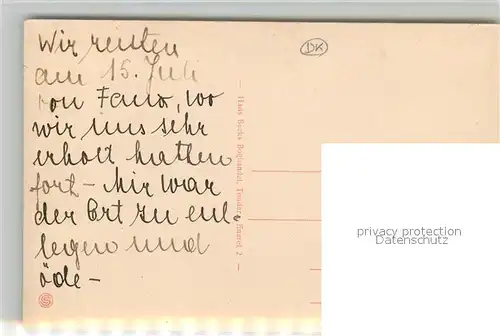 Wir reisten
am 15. Juli
von Fanö, wo
wir uns sehr
erholt hatten
fort - Mir war
der Ort zu ent
legen und
öde -
DK
Hans Becks Boghandel, Tønder
privacy protection
Datenschutz